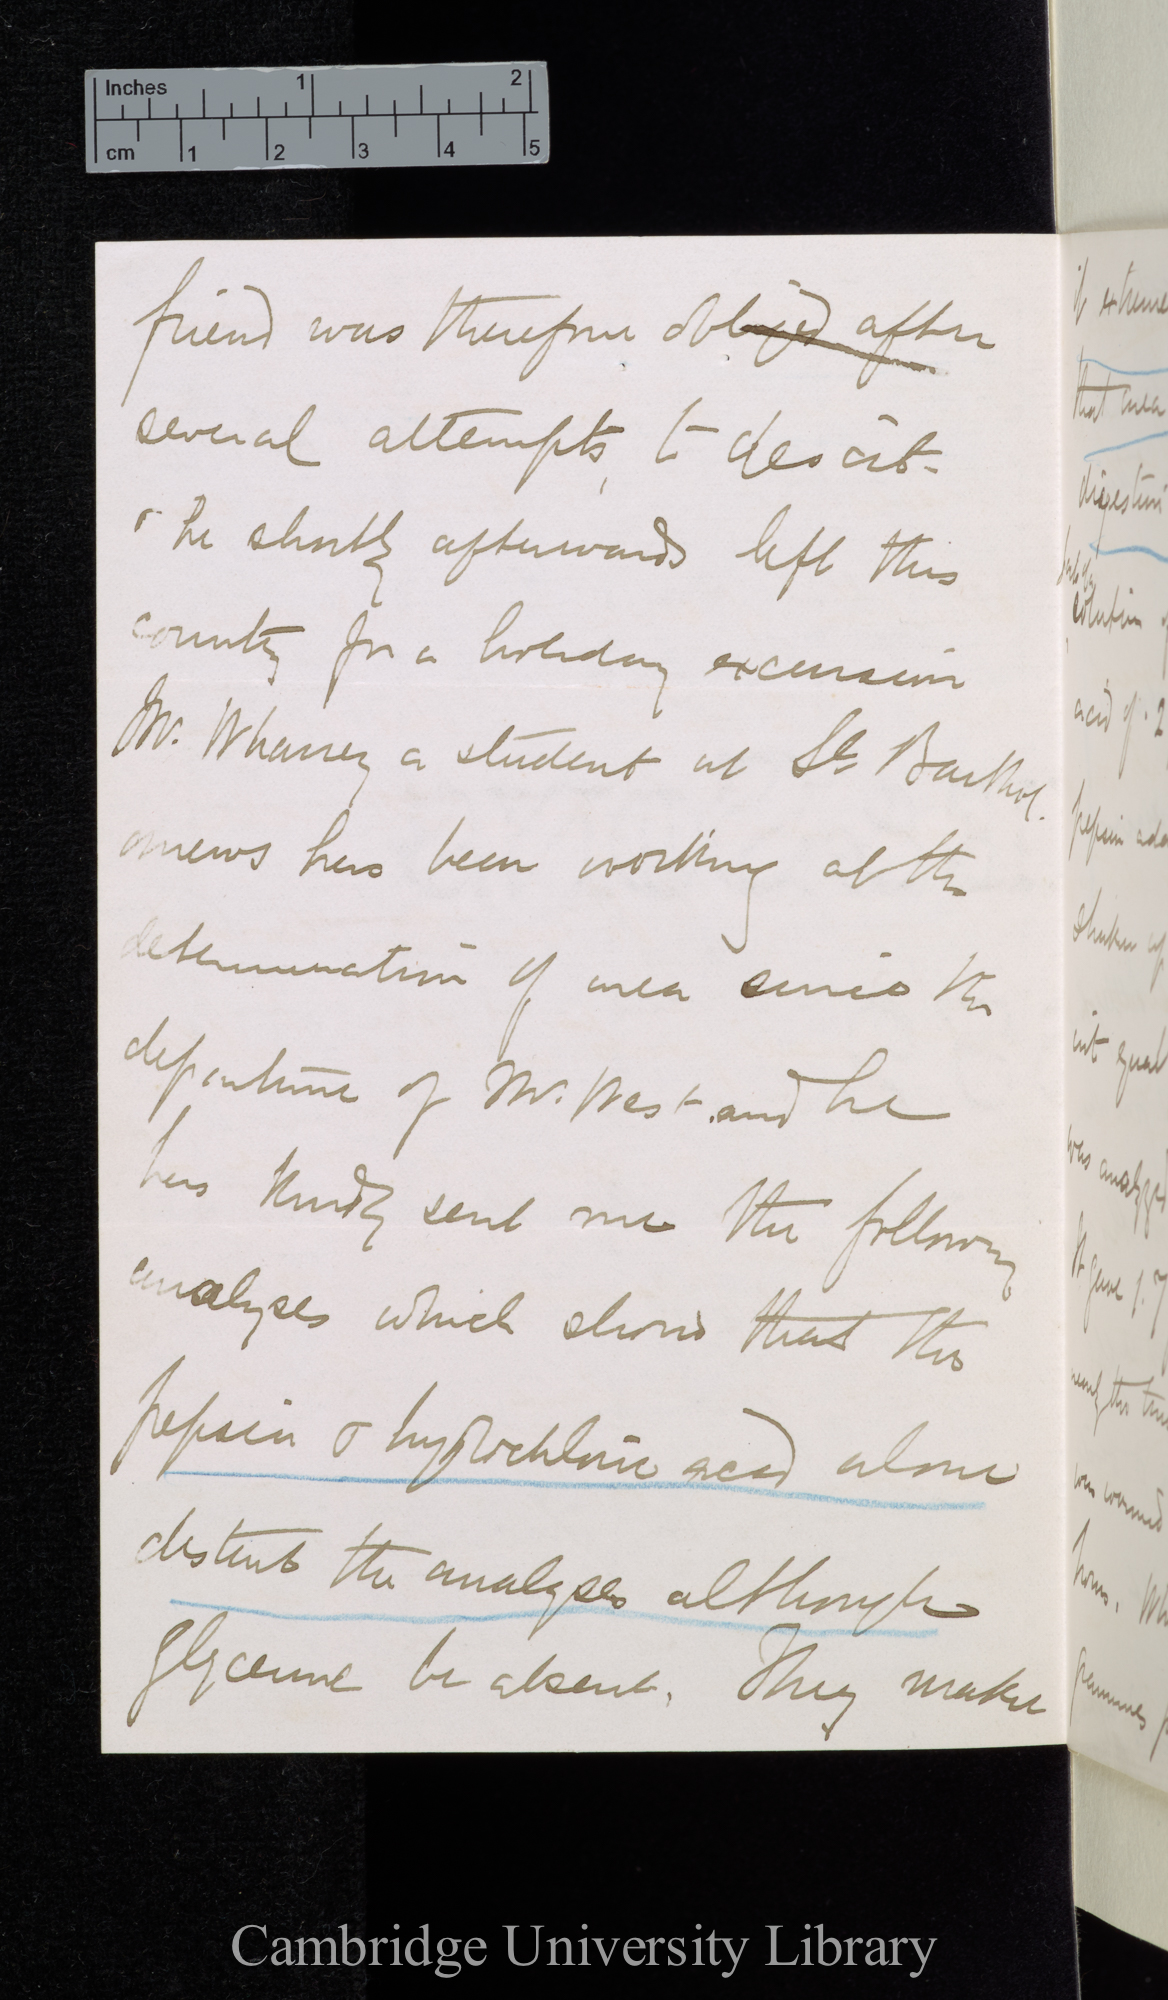 Inches 1 2
cm 1 2 3 4 5
friend was therefore obliged after
several attempts, to desist-
& he shortly afterwards left this
country for a holiday excursion
Mr. Wharrey a student at St. Barthol.
omews has been working at the
determination of urea since the
departure of Mr. West. and he
has kindly sent me the following
analyses which shows that the
pepsin & hydrochloric acid alone
disturb the analyses although
glycerine be absent. They make
if extreme
that urea
digestion
solution
acid of .2
pepsin add
shaken up
int equal
was analyzed
It gave 1.7
nearly the
were warmed
hours.
grammes
Cambridge University Library